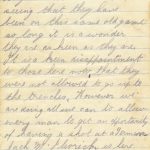 seeing that they have
been on this same old game
so long it is a wonder
they are as keen as they are.
It is a keen disappointment
to those here now, that they
were not allowed to go into
the trenches. However we
are doing all we can to allow
every man to get an opportunity
of having a shot at a German
Jack is here